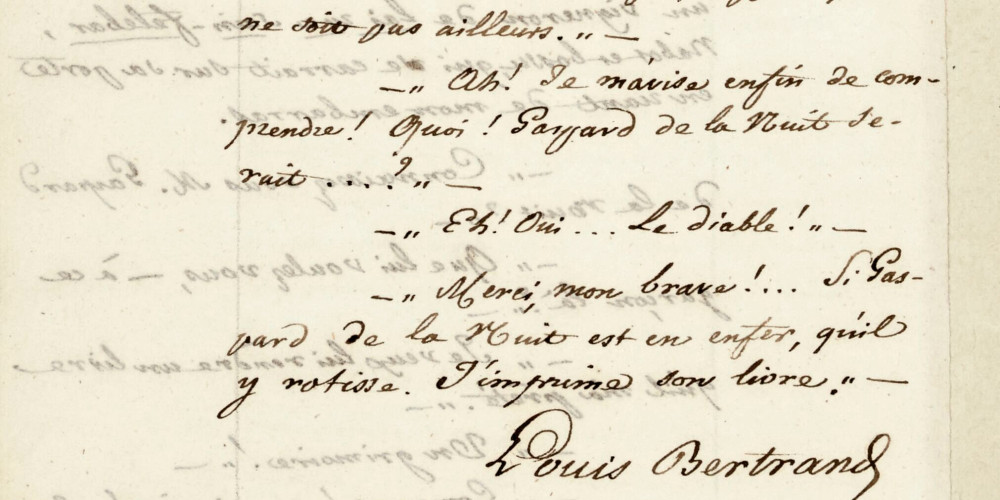 ne soit pas ailleurs. „ —
— „ Ah! Je m'avise enfin de com-
prendre! Quoi! Gaspard de la Nuit se-
rait ....? „ —
— „ Eh! Oui ... Le diable! „ —
— „ Merci, mon brave! ... Si Gas-
pard de la Nuit est en enfer, qu'il
y rotisse. J'imprime son livre. „ —
Louis Bertrand